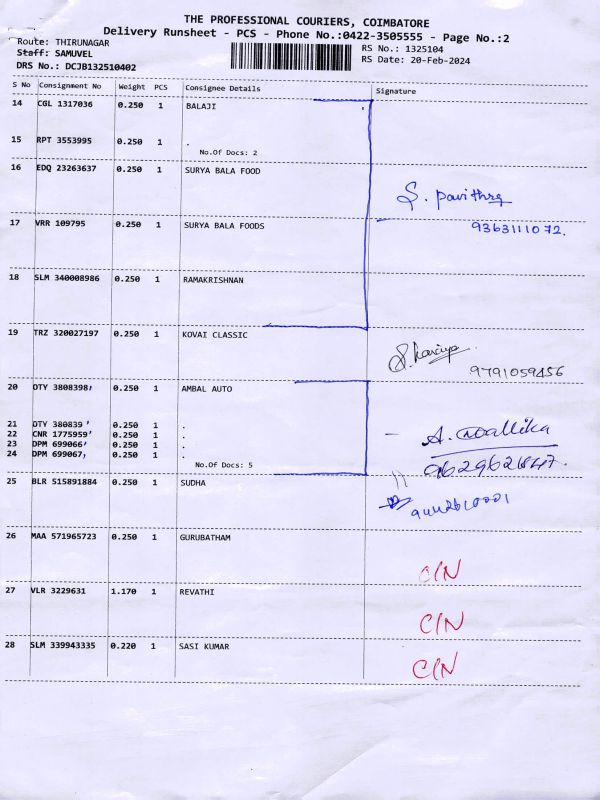 THE PROFESSIONAL COURIERS, COIMBATORE
Delivery Runsheet - PCS - Phone No.:0422-3505555 - Page No.:2
Route: THIRUNAGAR RS No.: 1325104
Staff: SAMUVEL RS Date: 20-Feb-2024
DRS No.: DCJB132510402
S No Consignment No Weight PCS Consignee Details Signature
14 CGL 1317036 0.250 1 BALAJI
15 RPT 3553995 0.250 1 .
No.Of Docs: 2
16 EDQ 23263637 0.250 1 SURYA BALA FOOD
S. Pavithra
17 VRR 109795 0.250 1 SURYA BALA FOODS
9363111072.
18 SLM 340008986 0.250 1 RAMAKRISHNAN
19 TRZ 320027197 0.250 1 KOVAI CLASSIC
9791059456
20 DTY 3808398 0.250 1 AMBAL AUTO
21 DTY 380839 0.250 1 .
22 CNR 1775959 0.250 1 .
- A. Mallika
23 DPM 699066 0.250 1 .
24 DPM 699067 0.250 1 .
No.Of Docs: 5
25 BLR 515891884 0.250 1 SUDHA
26 MAA 571965723 0.250 1 GURUBATHAM
C/N
27 VLR 3229631 1.170 1 REVATHI
C/N
28 SLM 339943335 0.220 1 SASI KUMAR
C/N